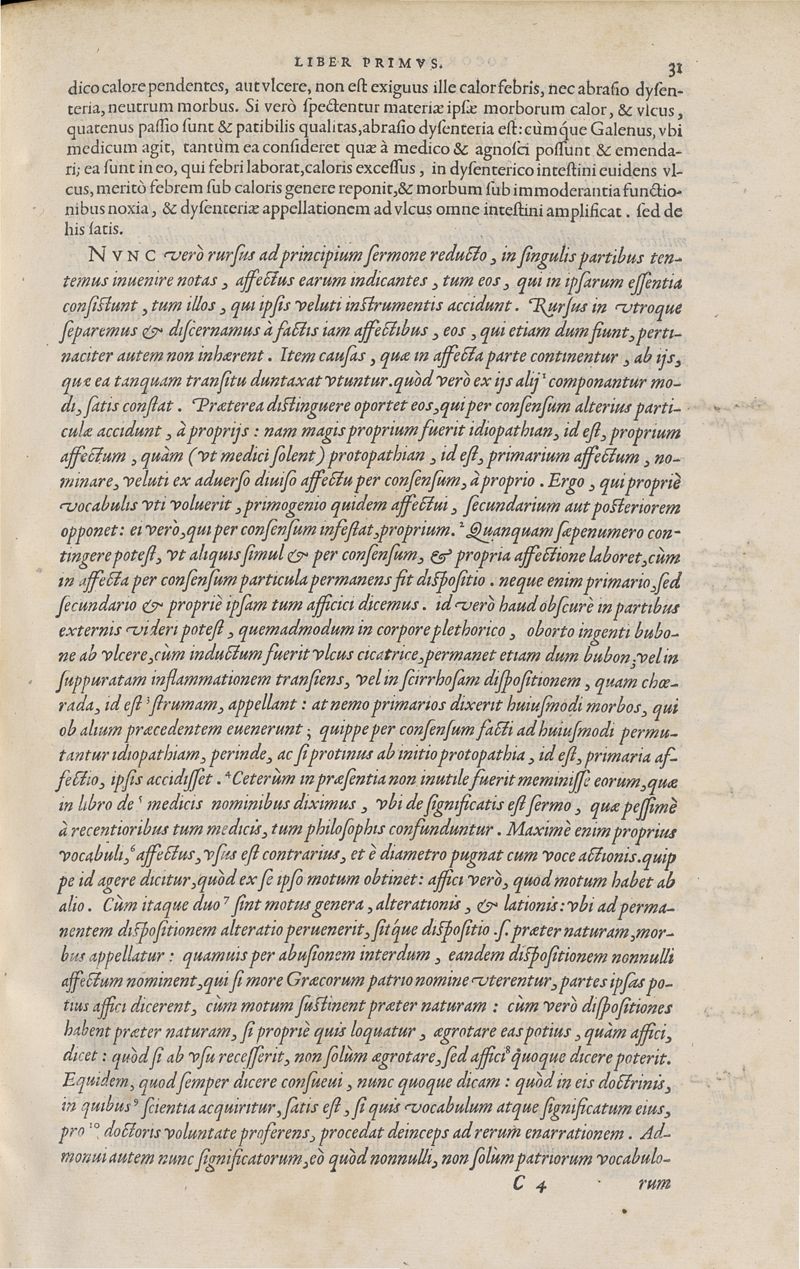 LIBER PRIMVS. 31
dico calore pendentes, aut vlcere, non est exiguus ille calor febris, nec abrasio dysen-
teria, neutrum morbus. Si verò spectentur materiæ ipsæ morborum calor, & vlcus,
quatenus passio sunt & patibilis qualitas, abrasio dysenteria est: cùmq́ue Galenus, vbi
medicum agit, tantùm ea consideret quæ à medico & agnosci possunt & emenda-
ri; ea sunt in eo, qui febri laborat, caloris excessus, in dysenterico intestini euidens vl-
cus, meritò febrem sub caloris genere reponit, & morbum sub immoderantia functio-
nibus noxia, & dysenteriæ appellationem ad vlcus omne intestini amplificat. sed de
his satis.
NVNC verò rursus ad principium sermone reducto, in singulis partibus ten-
temus inuenire notas, affectus earum indicantes, tum eos, qui in ipsarum essentia
consistunt, tum illos, qui ipsis veluti instrumentis accidunt. Rursus in vtroque
separemus & discernamus à factis iam affectibus, eos, qui etiam dum fiunt, perti-
naciter autem non inhærent. Item causas, quæ in affecta parte continentur, ab ijs,
quæ ea tanquam transitu duntaxat vtuntur. quòd verò ex ijs alij¹ componantur mo-
di, satis constat. Præterea distinguere oportet eos, qui per consensum alterius parti-
culæ accidunt, à proprijs: nam magis proprium fuerit idiopathian, id est, proprium
affectum, quàm (vt medici solent) protopathian, id est, primarium affectum, no-
minare, veluti ex aduerso diuiso affectu per consensum, à proprio. Ergo, qui propriè
vocabulis vti voluerit, primogenio quidem affectui, secundarium aut posteriorem
opponet: ei verò, qui per consensum infestat, proprium. ²Quanquam sæpenumero con-
tingere potest, vt aliquis simul & per consensum, & propria affectione laboret, cùm
in affecta per consensum particula permanens fit dispositio. neque enim primario, sed
secundario & propriè ipsam tum affici dicemus. id verò haud obscurè in partibus
externis videri potest, quemadmodum in corpore plethorico, oborto ingenti bubo-
ne ab vlcere, cùm inductum fuerit vlcus cicatrice, permanet etiam dum bubon, vel in
suppuratam inflammationem transiens, vel in scirrhosam dispositionem, quam chœ-
rada, id est ³strumam, appellant: at nemo primarios dixerit huiusmodi morbos, qui
ob alium præcedentem euenerunt; quippe per consensum facti ad huiusmodi permu-
tantur idiopathiam, perinde, ac si protinus ab initio protopathia, id est, primaria af-
fectio, ipsis accidisset. ⁴Ceterùm in præsentia non inutile fuerit meminisse eorum, quæ
in libro de ⁵ medicis nominibus diximus, vbi de significatis est sermo, quæ pessimè
à recentioribus tum medicis, tum philosophis confunduntur. Maximè enim proprius
vocabuli, ⁶affectus, vsus est contrarius, et è diametro pugnat cum voce actionis. quip
pe id agere dicitur, quòd ex se ipso motum obtinet: affici verò, quod motum habet ab
alio. Cùm itaque duo⁷ sint motus genera, alterationis, & lationis: vbi ad perma-
nentem dispositionem alteratio peruenerit, sitq́ue dispositio .s. præter naturam, mor-
bus appellatur: quamuis per abusionem interdum, eandem dispositionem nonnulli
affectum nominent, qui si more Græcorum patrio nomine vterentur, partes ipsas po-
tius affici dicerent, cùm motum sustinent præter naturam: cùm verò dispositiones
habent præter naturam, si propriè quis loquatur, ægrotare eas potius, quàm affici,
dicet: quòd si ab vsu recesserit, non solùm ægrotare, sed affici⁸ quoque dicere poterit.
Equidem, quod semper dicere consueui, nunc quoque dicam: quòd in eis doctrinis,
in quibus⁹ scientia acquiritur, satis est, si quis vocabulum atque significatum eius,
pro ¹⁰ doctoris voluntate proferens, procedat deinceps ad rerum enarrationem. Ad-
monui autem nunc significatorum, eò quòd nonnulli, non solùm patriorum vocabulo-
C 4 rum